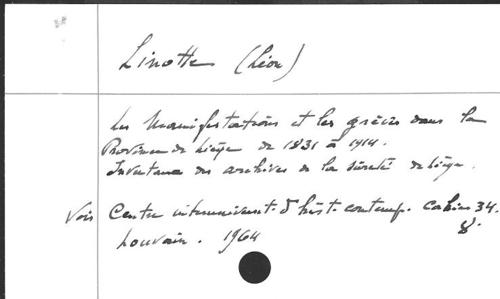 Linotte (Léon)
Les Manifestations et les grèves dans la
Province de Liège de 1831 à 1914.
Inventaire des archives de la Sûreté de Liège.
Voir Centre interunivers. d'hist. contemp. Cahier 34.
Louvain. 1964 8°.